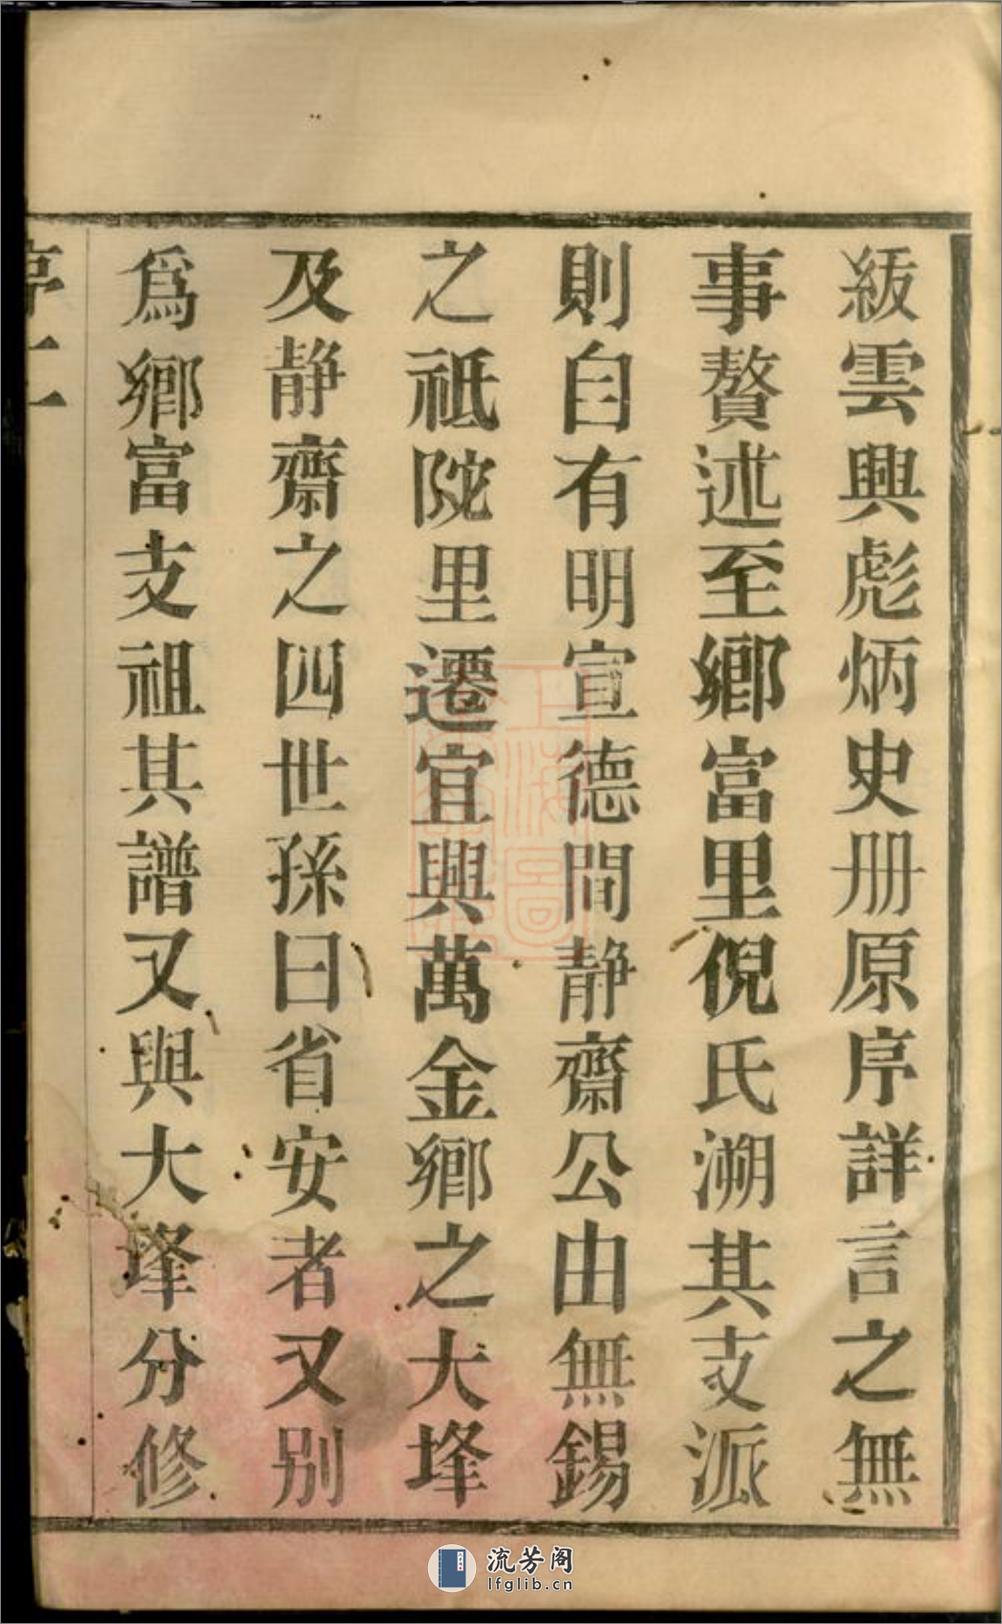 紱雲興彪炳史册原序詳言之無
事贅述至鄉富里倪氏溯其支派
則自有明宣德間静齋公由無錫
之祗陀里遷宜興萬金鄉之大埄
及静齋之四世孫曰省安者又别
爲鄉富支祖其譜又與大埄分修
序二
上海圖
流芳阁
lfglib.cn